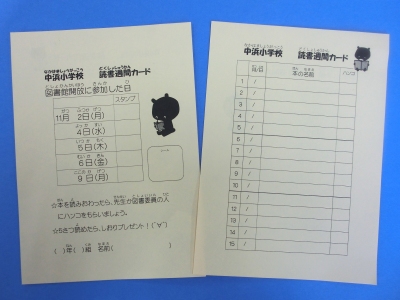 なかはましょうがっこう どくしょしゅうかん
中浜小学校 読書週間カード
としょかんかいほう さんか ひ
図書館開放に参加した日
スタンプ
11月 2日(月)
4日(水)
5日(木)
6日(金)
9日(月)
☆本を読みおわったら、先生か図書委員の人
にハンコをもらいましょう。
☆5さつ読めたら、しおりプレゼント！(ˆ∀ˆ)
( )年( )組 名前( )
なかはましょうがっこう どくしょしゅうかん
中浜小学校 読書週間カード
本の名前
ハンコ
1 /
2 /
3 /
4 /
5 /
6 /
7 /
8 /
9 /
10 /
11 /
12 /
13 /
14 /
15 /